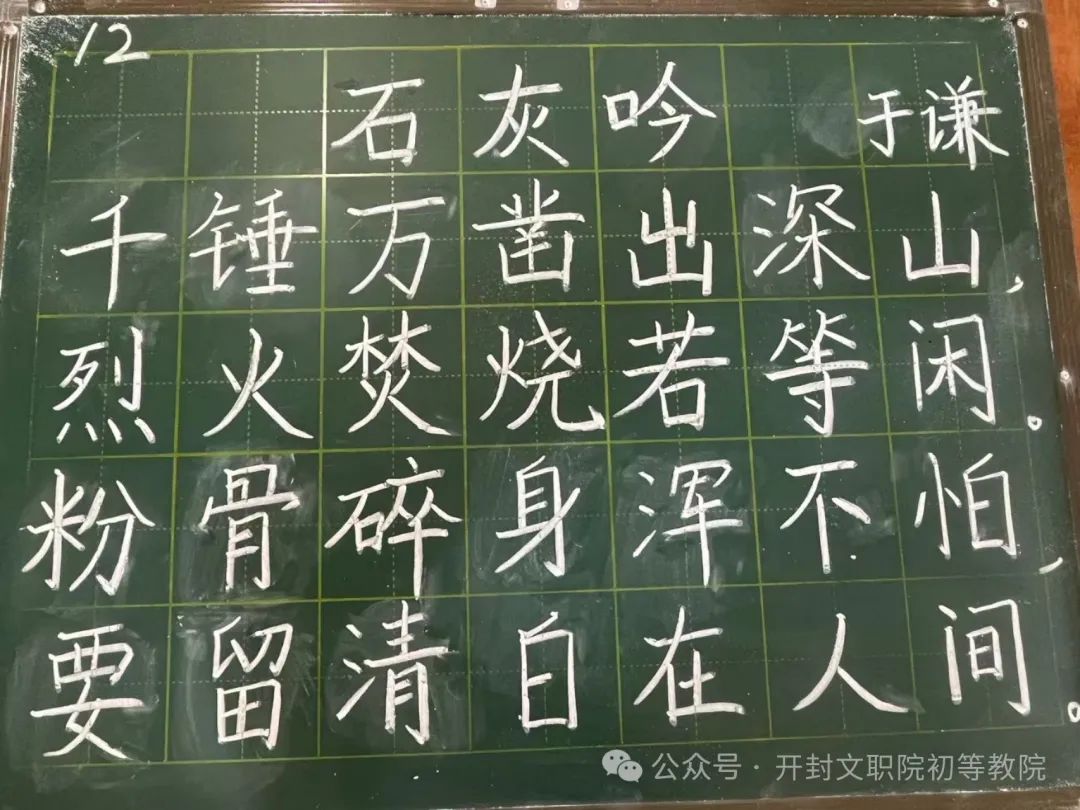 12
石灰吟 于谦
千锤万凿出深山，
烈火焚烧若等闲。
粉骨碎身浑不怕，
要留清白在人间。
公众号·开封文职院初等教院